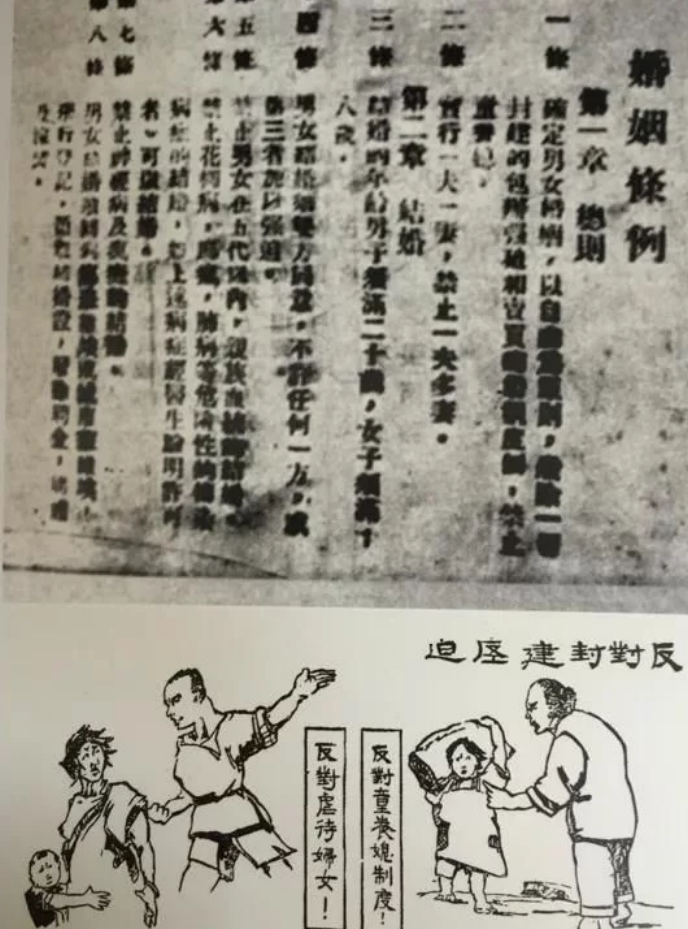 婚姻條例
第一章 總則
一條 確定男女婚姻，以自由為原則，廢除一切
封建的包辦强迫和買賣的婚姻制度，禁止
童養媳。
二條 實行一夫一妻，禁止一夫多妻。
第二章 結婚
三條 結婚的年齡男子須滿二十歲，女子須滿十
八歲。
四條 男女結婚須雙方同意，不許任何一方，或
第三者加以强迫。
五條 禁止男女在五代以內，親族血統的結婚。
六條 禁止花柳病，麻瘋，肺病等危險性的傳染
病症的結婚，如上述病症經醫生驗明許可
者、可以結婚。
七條 禁止神經病及瘋癱的結婚。
第八條 男女結婚須同
舉行登記，領取結婚證，廢除聘金，聘禮
反對封建压迫
反對童養媳制度！
反對虐待婦女！